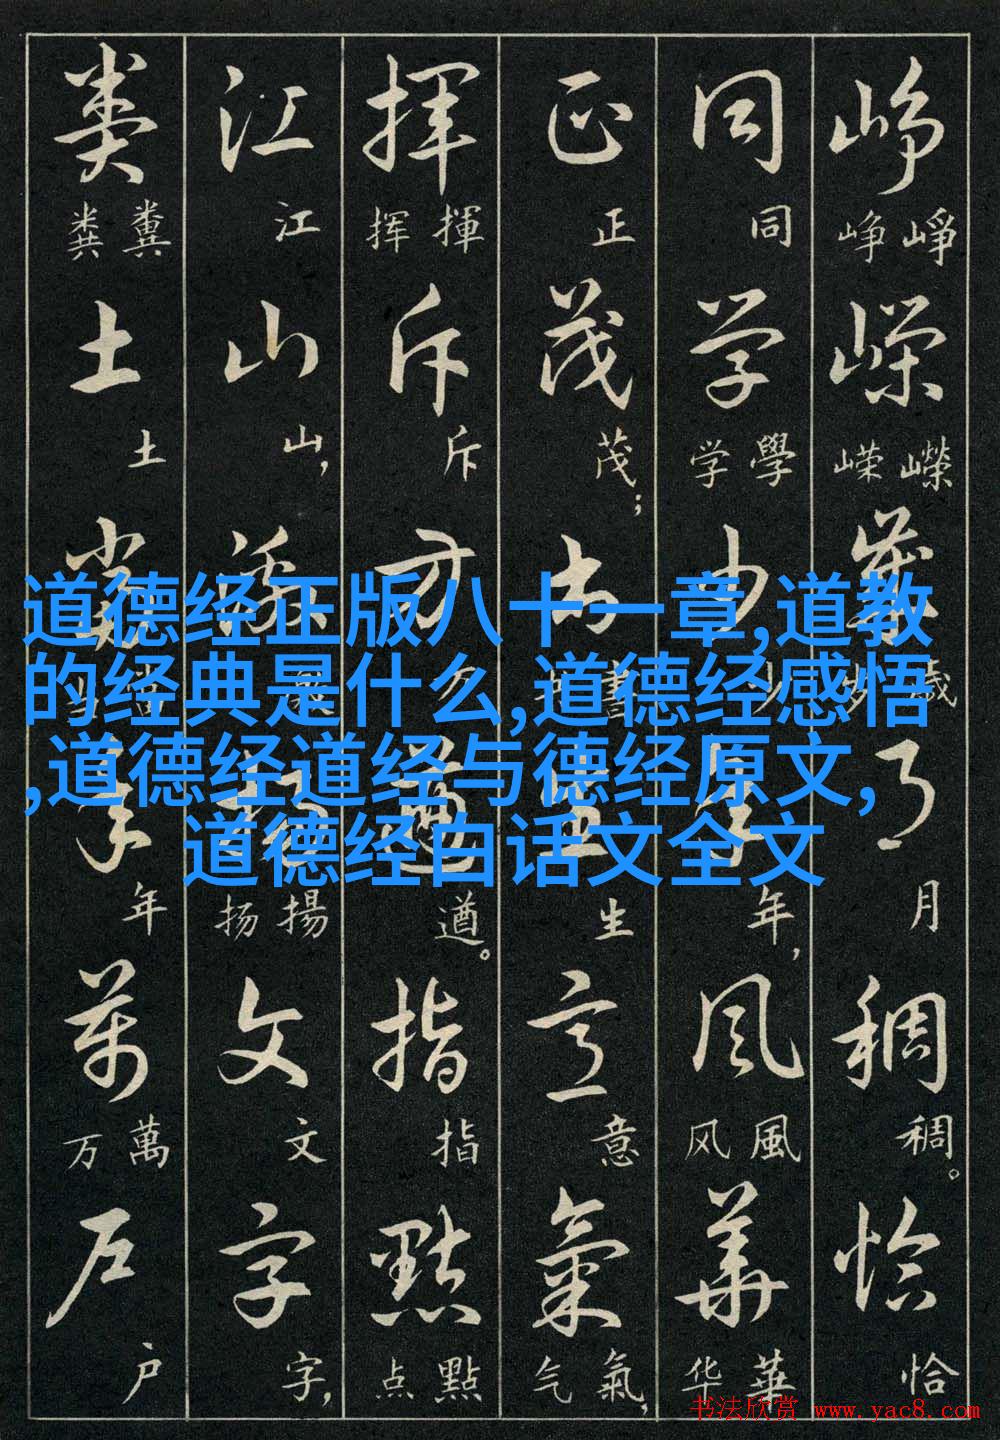 峥嵘岁月稠恰
峥崢嵘嶸歲月稠。恰
同学少年风華
同学學少年,风風华華
正茂书生意氣
正茂;書生意气氣,
揮斥方遒指點
挥揮斥方遒。指点點
江山激揚文字
江山,扬揚文字,
粪土當年万户
粪糞土當年万萬户
道德经正版八十一章,道教
的经典是什么,道德经感悟
,道德经道经与德经原文,
道德经白话文全文
书法欣赏 www.yac8.com